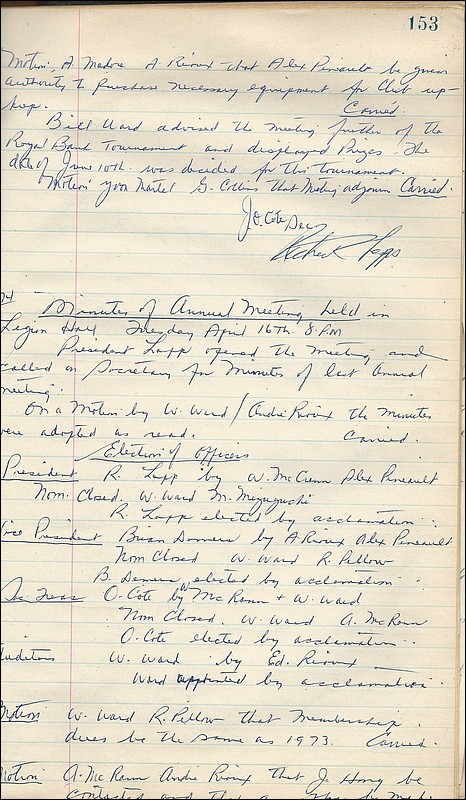 153
Motion, A. Madore A. Rioux that Alex Pineault be given
authority to purchase necessary equipment for Club up-
keep. Carried.
Bill Ward advised the meeting further of the
Royal Bank Tournament and displayed Prizes. The
date of June 10th. was decided for this tournament.
Motion Yvon Martel G. Collins that Meeting adjourn Carried.
J.O. Cote Secy
Lapp.
74 Minutes of Annual Meeting held in
Legion Hall Tuesday April 16th. 8. P.M
President Lapp opened the meeting and
called on Secretary for Minutes of last Annual
meeting.
On a Motion by W. Ward / Andre Rioux the minutes
were adopted as read. Carried.
Election of Officers
President R. Lapp by W. McCrann Alex Pineault
Nom. Closed. W. Ward M. Mizuguchi
R. Lapp elected by acclamation.
Vice President Brian Demers by A Rioux Alex Pineault
Nom Closed W. Ward R. Pellow
B. Demers elected by acclamation
Sec Treas O. Cote by McRann + W. Ward
Nom Closed. W. Ward A. McRann
O. Cote elected by acclamation
Auditors W. Ward by Ed. Rioux
Ward appointed by acclamation.
Motion W. Ward R. Pellow that Membership
dues be the same as 1973. Carried.
Motion A. McRann Andre Rioux that J. Hong be
contacted and that a